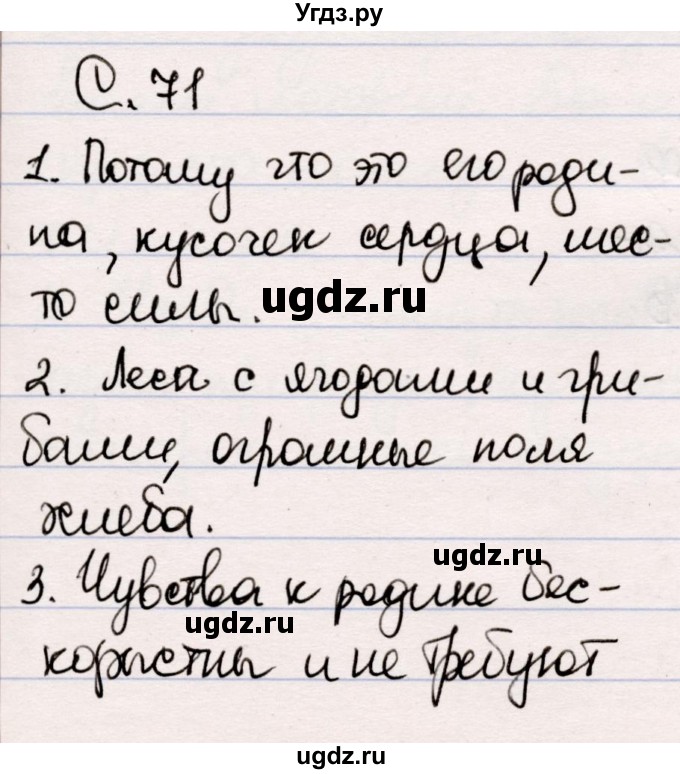 Угдз.ру
С. 71
1. Потому что это его роди-
на, кусочек сердца, мес-
то силы.
ugdz.ru
2. Леса с ягодами и гри-
бами, огромные поля
хлеба.
ugdz.ru
3. Чувства к родине бес-
ugdz.ru
корыстны и не требуют
ugdz.ru